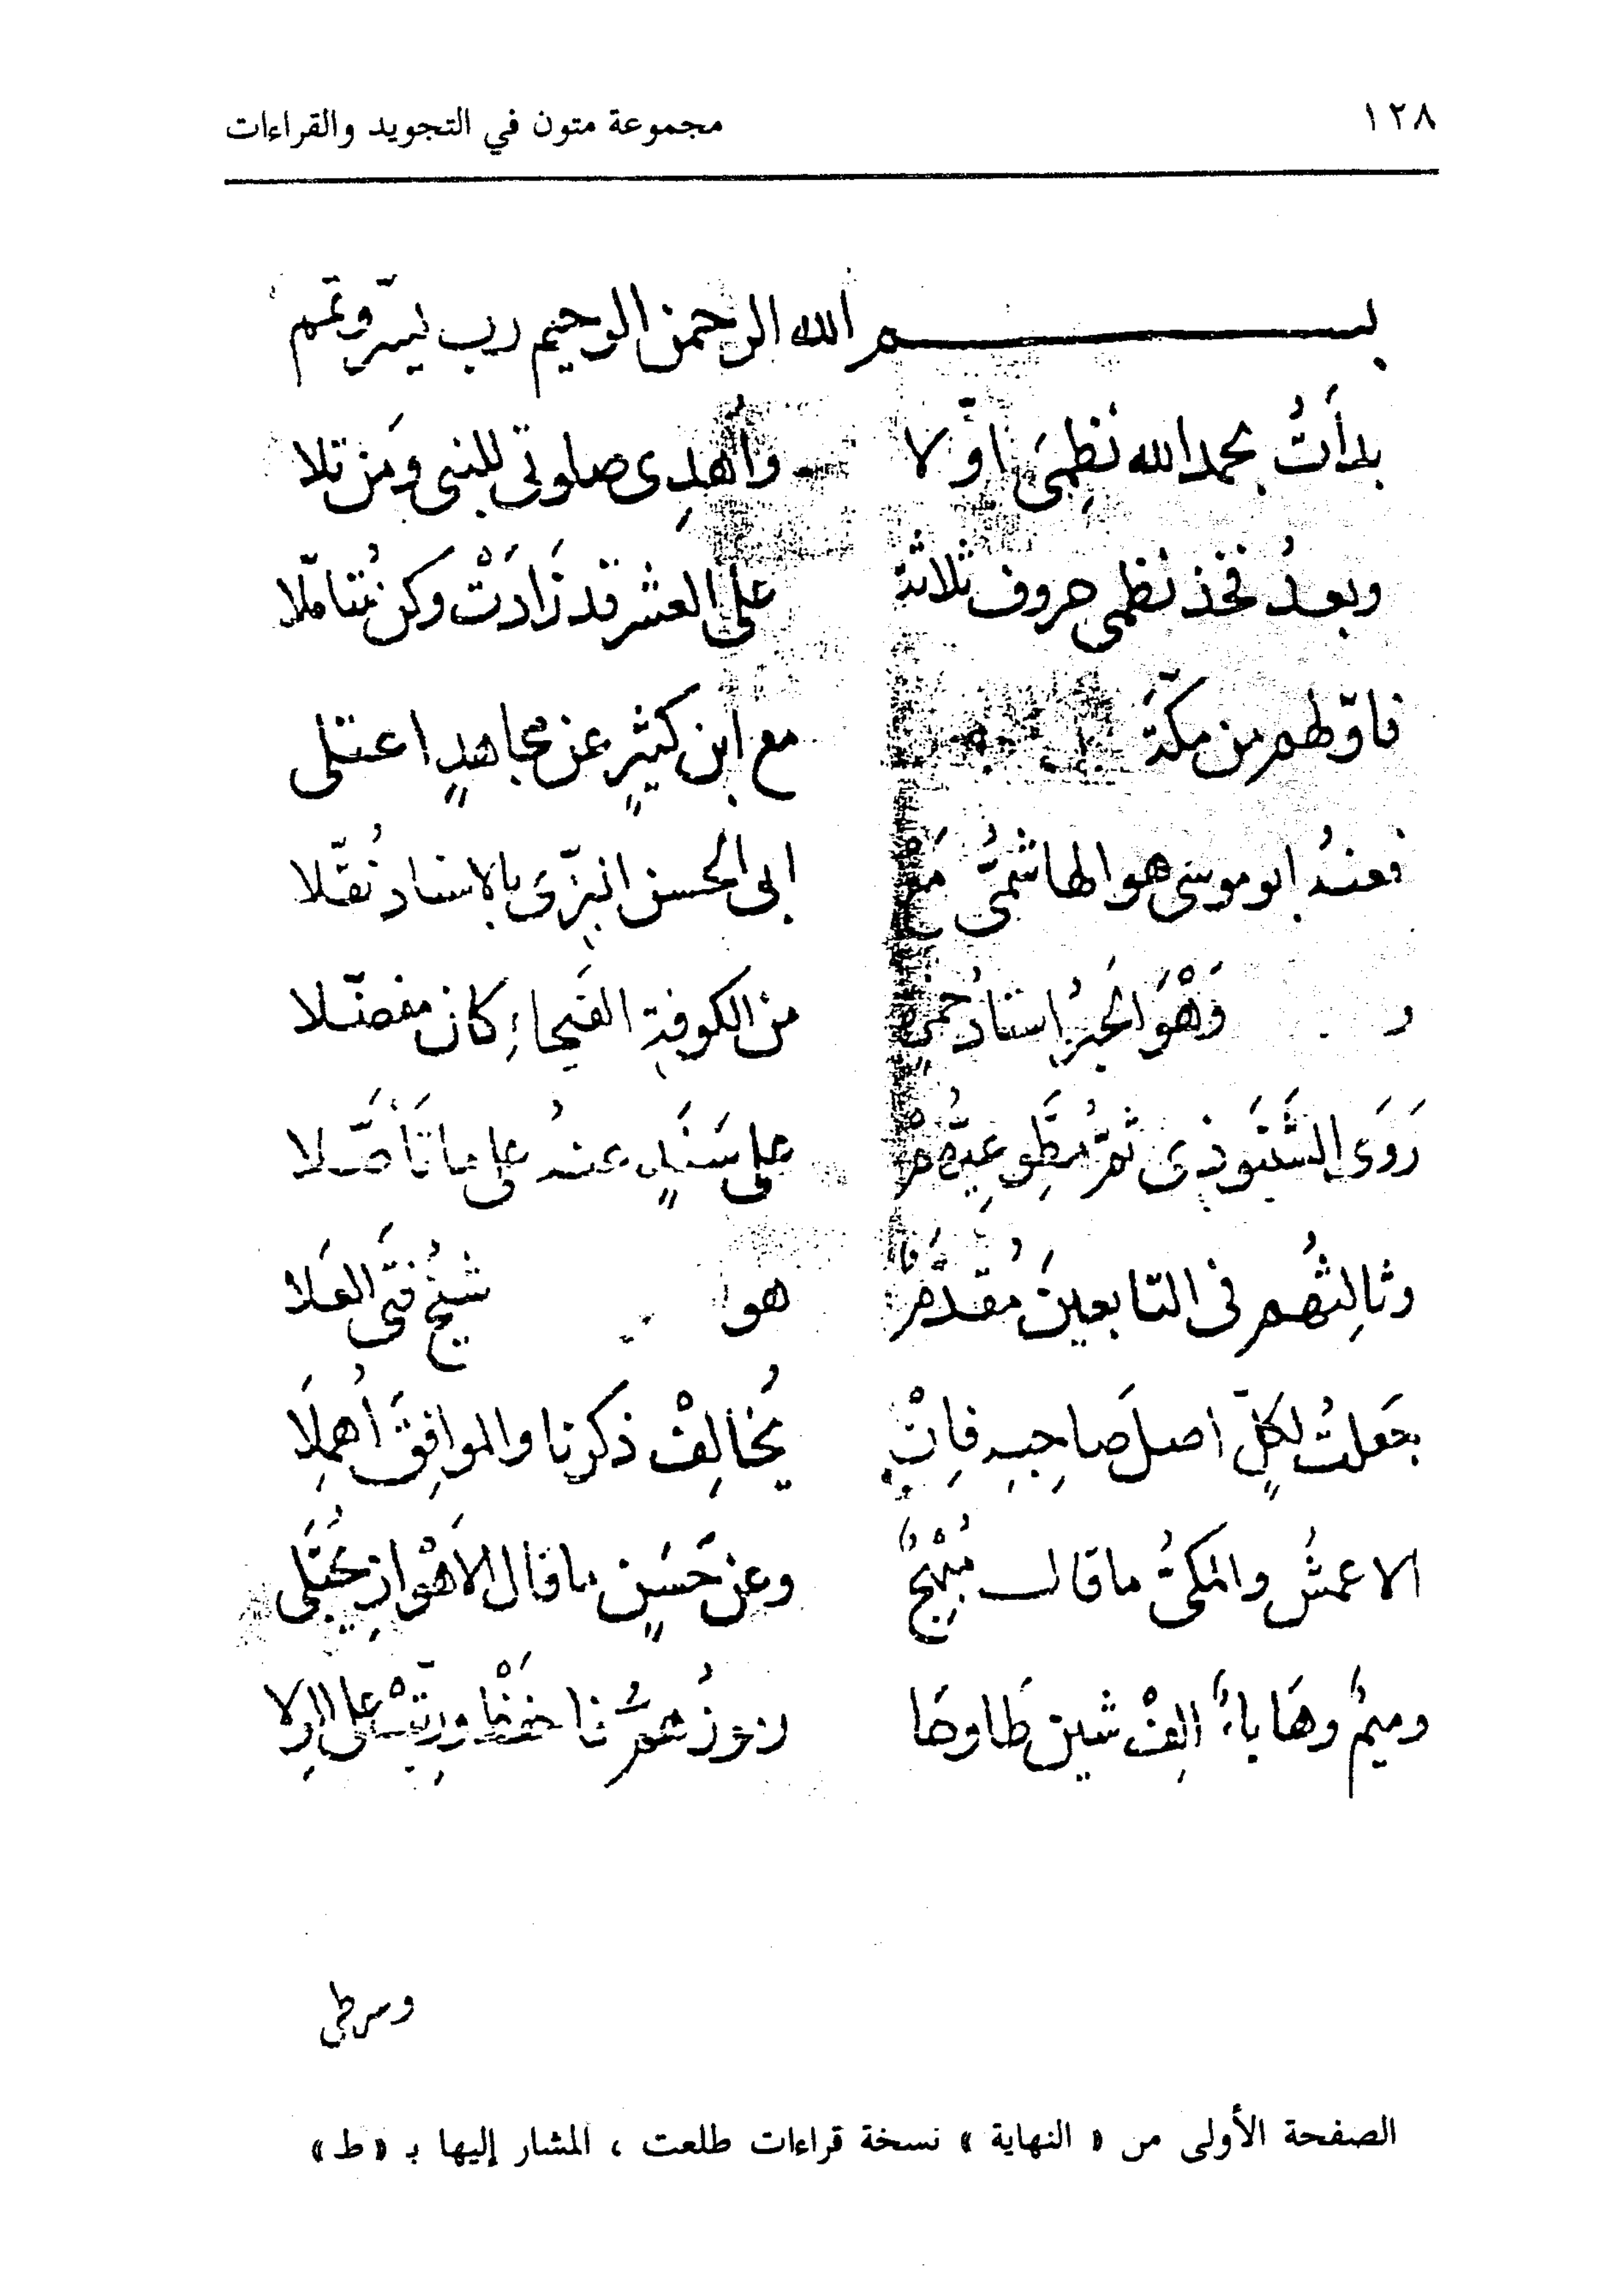 ١٢٨ مجموعة متون في التجويد والقراءات
بسم الله الرحمن الرحيم رب يسّر وتمم
بدأتُ بحمد الله نظمِىَ اوّلا وأُهدِى صلوتى للنبى ومَن تلا
وبعدُ فخذ نظمى حروف ثلاثة على العشر قد زَادَتْ وكن مُتاملا
فاوّلهم من مكّةَ مع ابن كثيرٍ عن مجاهدٍ اعتلى
فعنهُ ابو موسى هو الهاشمىُّ مع ابى الحسن البزّىَ بالاسناد نُقّلا
وَهْوَ الحبرُ استادُ حمزة من الكوفةِ الفيحاءِ كان مفضّلا
رَوَى الشَّنَبوذى ثمَّ مطَّوِعِيُّهمْ على سَنَدٍ عنهُ على ما تَأَصَّلا
وثالِثُهم فى التابعينَ مُقدَّمٌ هو شيخُ فتى العَلا
جَعلتُ لكلٍّ اصلَ صاحِبِه فإنْ يُخَالِفْ ذكرنا والموافِقَ اُهمِلَا
الاعمشُ والمكىُّ ما قال مُبْهِجٌ وعن حَسَنٍ ما قال الاَهْوازِ يُجتَلى
وميمٌ وهَا باءٌ الِفْ شين طَا وحَا رموزُهمُ فاحفَظْها ورتِّبْ على الوِلا
الصفحة الأولى من « النهاية » نسخة قراءات طلعت ، المشار إليها بـ «ط»